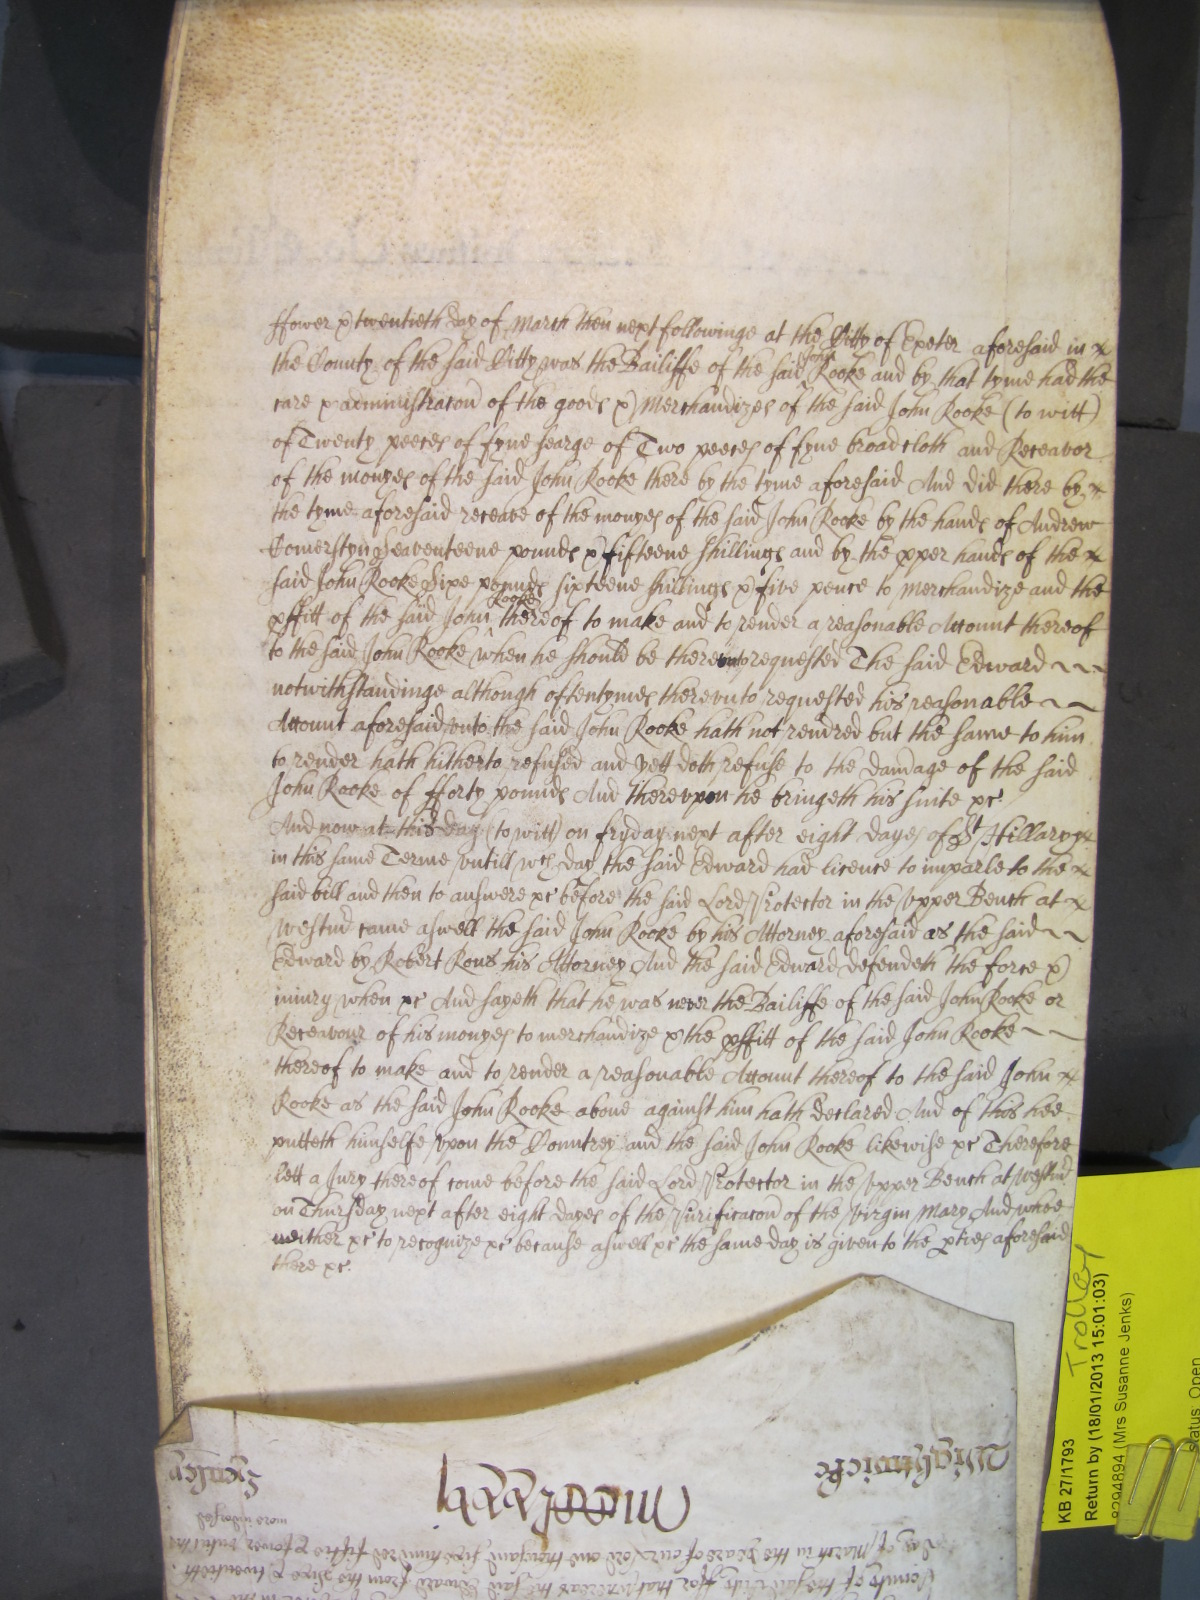 ffower & twentieth day of March then next followinge at the Citty of Exeter aforesaid in
the County of the said Citty was the Bailiffe of the said John Rooke and by that tyme had the
care & administracon of the goods & Merchandizes of the said John Rooke (to witt)
of Twenty peeces of fyne searge of Two peeces of fyne broadcloth and Receavor
of the monyes of the said John Rooke there by the tyme aforesaid And did there by
the tyme aforesaid receave of the monyes of the said John Rooke by the hands of Andrew
Seaventeene pounds & fifteene shillings and by the pper hands of the
said John Rooke Sixe pounds sixteene shillings & five pence to Merchandize and the
pffitt of the said John Rooke thereof to make and to render a reasonable Account thereof
to the said John Rooke when he should be thereunto requested The said Edward
notwithstandinge although oftentymes therevnto requested his reasonable
Account aforesaid vnto the said John Rooke hath not rendred but the same to him
to render hath hitherto refused and yett doth refuse to the damage of the said
John Rooke of fforty pounds And therevpon he bringeth his suite &c
And now at this day (to witt) on fryday next after eight dayes of St Hillary
in this same Terme vntill wch day the said Edward had licence to imparle to the
said bill and then to answere &c before the said Lord Protector in the vpper Bench at
Westmr came aswell the said John Rooke by his Attorney aforesaid as the said
Edward by Robert Rous his Attorney And the said Edward defendeth the force &
iniury when &c And sayeth that he was never the Bailiffe of the said John Rooke or
Receavour of his monyes to merchandize & the pffitt of the said John Rooke
thereof to make and to render a reasonable Account thereof to the said John
Rooke as the said John Rooke above against him hath declared And of this hee
putteth himselfe vpon the Countrey and the said John Rooke likewise &c Therefore
lett a Jury thereof come before the said Lord Protector in the vpper Bench at Westmr
on Thursday next after eight dayes of the Purificacon of the virgin Mary And whoe
neither &c to recognize &c because aswell &c the same day is given to the pties aforesaid
there &c.
Wightwicke
more
day of March in the yeare of our Lord one thousand sixe hundred fiftie & fower vntill the
the said Edward from the sixe & twentieth
KB 27/1793
Trolley
Return by (18/01/2013 15:01:03)
8294894 (Mrs Susanne Jenks)
status Open